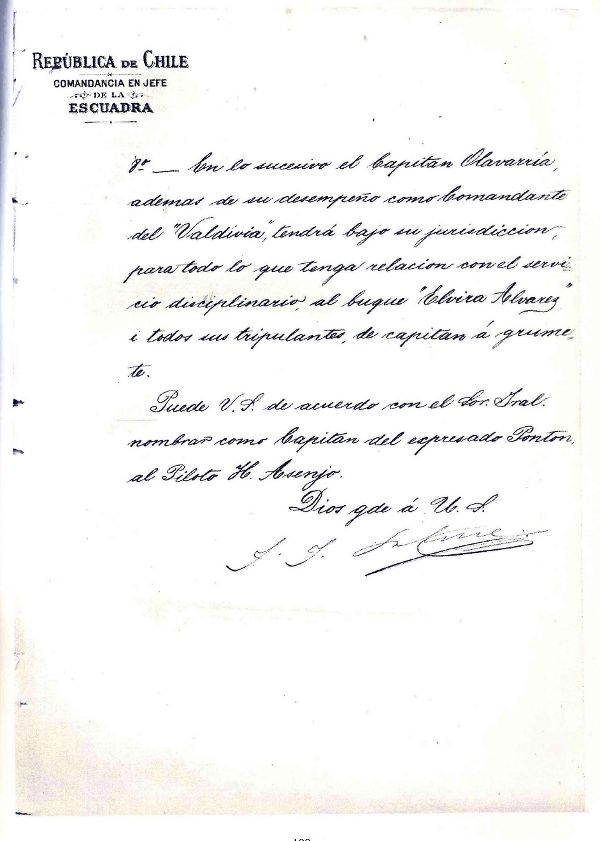 REPÚBLICA DE CHILE
COMANDANCIA EN JEFE
DE LA
ESCUADRA
8º — En lo sucesivo el Capitan Olavarría,
ademas de su desempeño como Comandante
del "Valdivia", tendrá bajo su jurisdiccion,
para todo lo que tenga relacion con el servi-
cio disciplinario, al buque "Elvira Alvarez"
i todos sus tripulantes, de capitan á grume-
te.
Puede V. S. de acuerdo con el Sor. Gral.
nombrar como Capitan del espresado Ponton,
al Piloto H. Asenjo.
Dios gde á U. S.